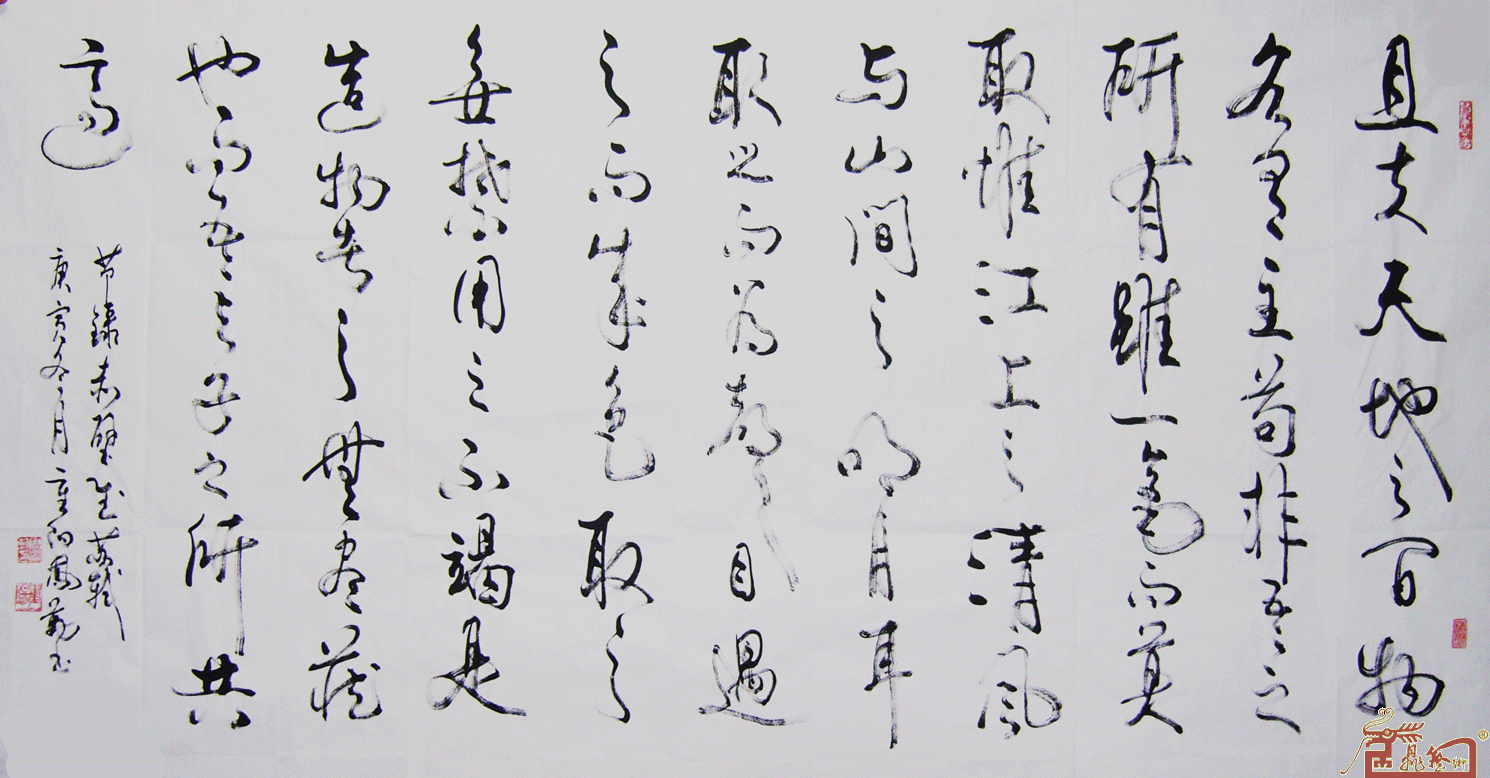 且夫天地之間物
各有主苟非吾之
所有雖一毫而莫
取惟江上之清風
与山間之明月耳
取之而为聲目遇
之而成色取之
無禁用之不竭是
造物者之無盡藏
也而吾与子之所共
適
节録赤壁賦蘇軾
庚寅冬月